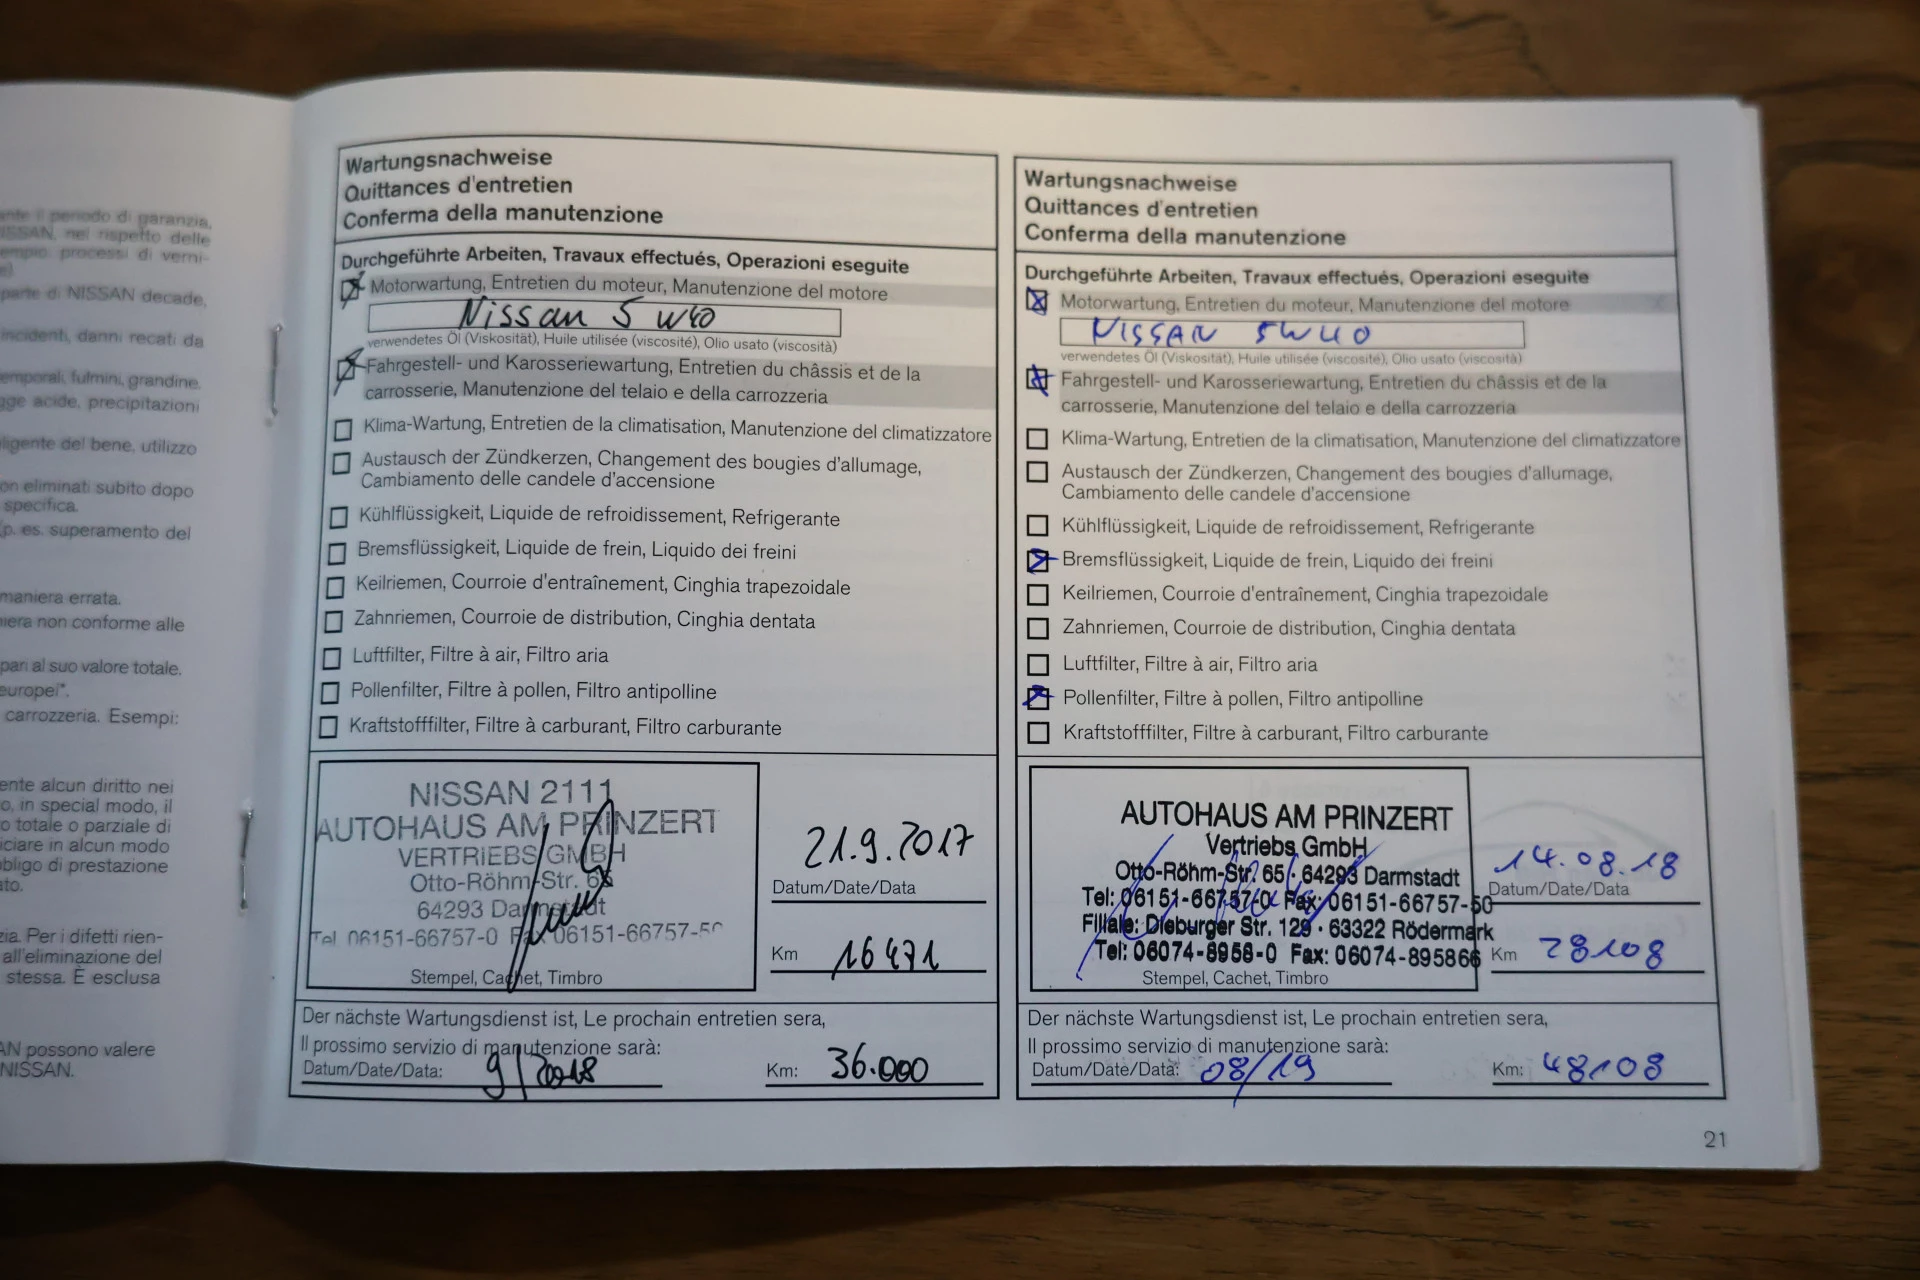 ante il periodo di garanzia,
NISSAN, nel rispetto delle
empio: processi di verni-
parte di NISSAN decade,
incidenti, danni recati da
emporali, fulmini, grandine,
gge acide, precipitazioni
ligente del bene, utilizzo
on eliminati subito dopo
specifica.
(p. es. superamento del
maniera errata.
niera non conforme alle
pari al suo valore totale.
europei".
carrozzeria. Esempi:
ente alcun diritto nei
o, in special modo, il
o totale o parziale di
ciare in alcun modo
bbligo di prestazione
ato.
zia. Per i difetti rien-
all'eliminazione del
stessa. È esclusa
AN possono valere
NISSAN.
Wartungsnachweise
Quittances d'entretien
Conferma della manutenzione
Durchgeführte Arbeiten, Travaux effectués, Operazioni eseguite
Motorwartung, Entretien du moteur, Manutenzione del motore
Nissan 5 W40
verwendetes Öl (Viskosität), Huile utilisée (viscosité), Olio usato (viscosità)
Fahrgestell- und Karosseriewartung, Entretien du châssis et de la
carrosserie, Manutenzione del telaio e della carrozzeria
Klima-Wartung, Entretien de la climatisation, Manutenzione del climatizzatore
Austausch der Zündkerzen, Changement des bougies d'allumage,
Cambiamento delle candele d'accensione
Kühlflüssigkeit, Liquide de refroidissement, Refrigerante
Bremsflüssigkeit, Liquide de frein, Liquido dei freini
Keilriemen, Courroie d'entraînement, Cinghia trapezoidale
Zahnriemen, Courroie de distribution, Cinghia dentata
Luftfilter, Filtre à air, Filtro aria
Pollenfilter, Filtre à pollen, Filtro antipolline
Kraftstofffilter, Filtre à carburant, Filtro carburante
NISSAN 2111
AUTOHAUS AM PRINZERT
VERTRIEBS GMBH
Otto-Röhm-Str. 65
64293 Darmstadt
Tel 06151-66757-0 Fax 06151-66757-50
Stempel, Cachet, Timbro
21.9.2017
Datum/Date/Data
Km 16471
Der nächste Wartungsdienst ist, Le prochain entretien sera,
Il prossimo servizio di manutenzione sarà:
Datum/Date/Data: 9/2018 Km: 36.000
Wartungsnachweise
Quittances d'entretien
Conferma della manutenzione
Durchgeführte Arbeiten, Travaux effectués, Operazioni eseguite
Motorwartung, Entretien du moteur, Manutenzione del motore
NISSAN 5W40
verwendetes Öl (Viskosität), Huile utilisée (viscosité), Olio usato (viscosità)
Fahrgestell- und Karosseriewartung, Entretien du châssis et de la
carrosserie, Manutenzione del telaio e della carrozzeria
Klima-Wartung, Entretien de la climatisation, Manutenzione del climatizzatore
Austausch der Zündkerzen, Changement des bougies d'allumage,
Cambiamento delle candele d'accensione
Kühlflüssigkeit, Liquide de refroidissement, Refrigerante
Bremsflüssigkeit, Liquide de frein, Liquido dei freini
Keilriemen, Courroie d'entraînement, Cinghia trapezoidale
Zahnriemen, Courroie de distribution, Cinghia dentata
Luftfilter, Filtre à air, Filtro aria
Pollenfilter, Filtre à pollen, Filtro antipolline
Kraftstofffilter, Filtre à carburant, Filtro carburante
AUTOHAUS AM PRINZERT
Vertriebs GmbH
Otto-Röhm-Str. 65 · 64293 Darmstadt
Tel: 06151-66757-0 Fax: 06151-66757-50
Filiale: Dieburger Str. 129 · 63322 Rödermark
Tel: 06074-8958-0 Fax: 06074-895866
Stempel, Cachet, Timbro
14.08.18
Datum/Date/Data
Km 28108
Der nächste Wartungsdienst ist, Le prochain entretien sera,
Il prossimo servizio di manutenzione sarà:
Datum/Date/Data: 08/19 Km: 48108
21